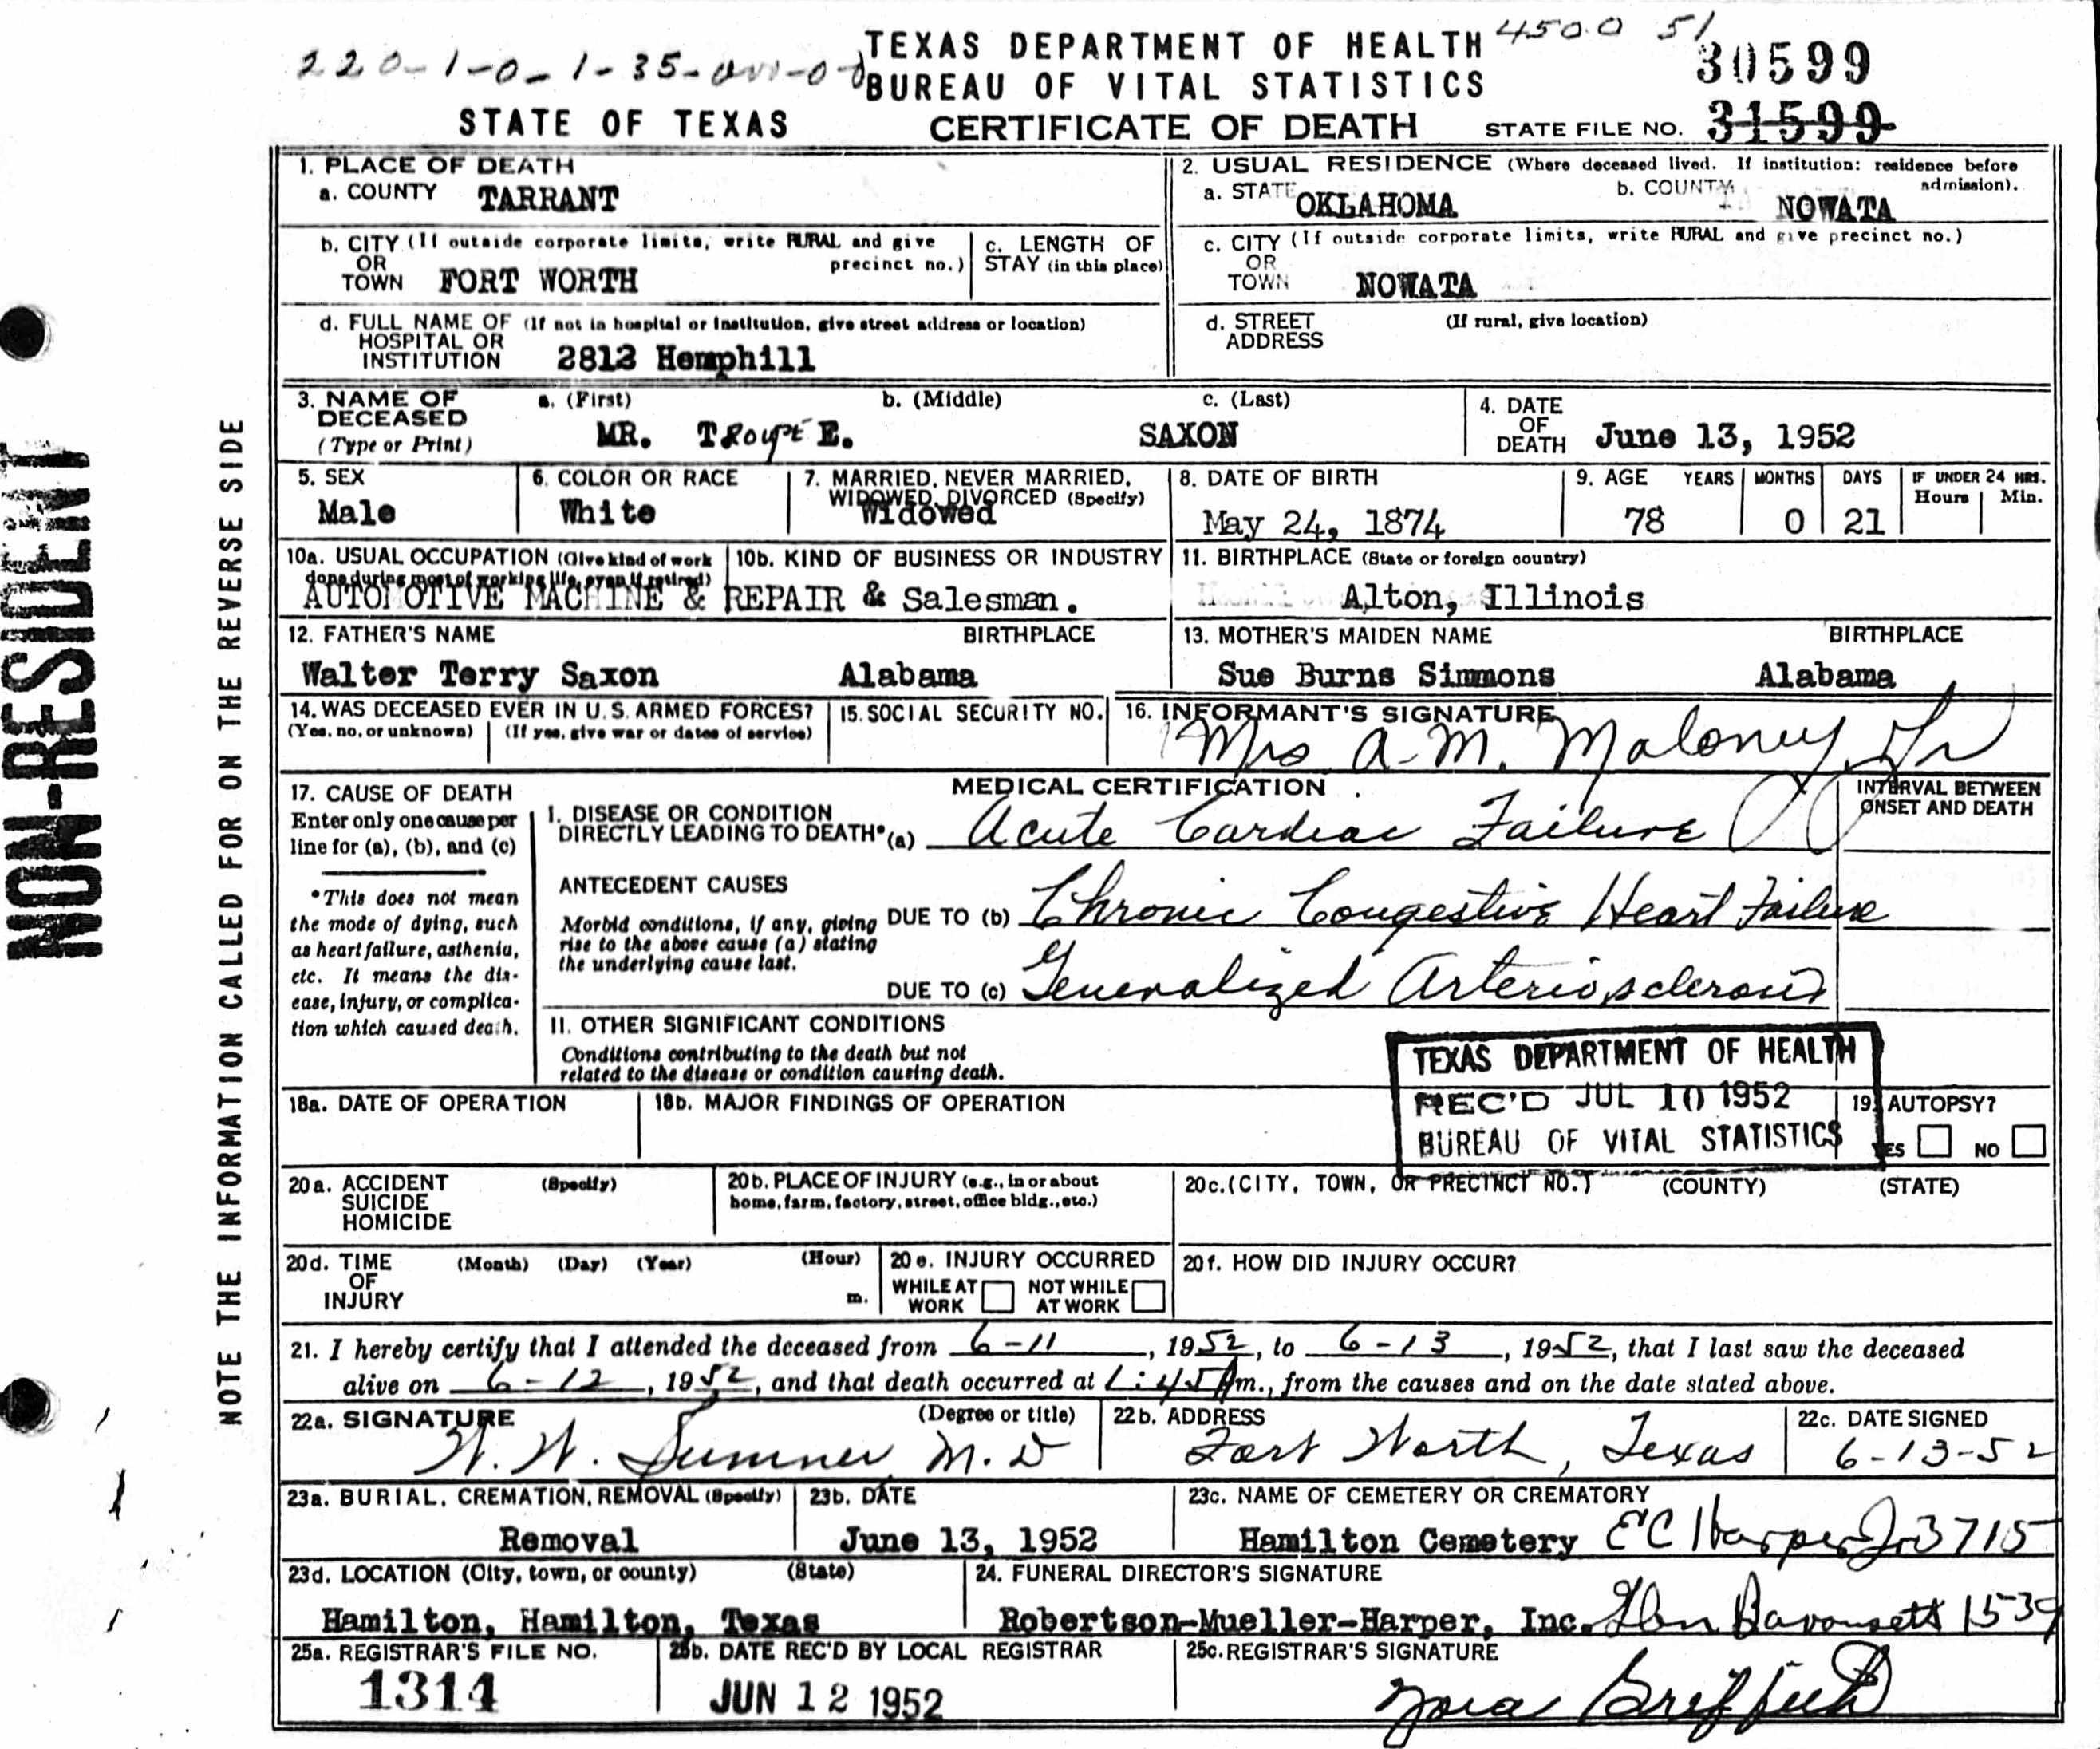 220-1-0-1-35-
4500 51
TEXAS DEPARTMENT OF HEALTH
BUREAU OF VITAL STATISTICS
30599
STATE OF TEXAS
CERTIFICATE OF DEATH
STATE FILE NO. 31599
NON-RESIDENT
NOTE THE INFORMATION CALLED FOR ON THE REVERSE SIDE
1. PLACE OF DEATH
a. COUNTY TARRANT
2. USUAL RESIDENCE (Where deceased lived. If institution: residence before admission).
a. STATE OKLAHOMA b. COUNTY NOWATA
b. CITY (If outside corporate limits, write RURAL and give precinct no.)
OR
TOWN FORT WORTH
c. LENGTH OF
STAY (in this place)
c. CITY (If outside corporate limits, write RURAL and give precinct no.)
OR
TOWN NOWATA
d. FULL NAME OF (If not in hospital or institution, give street address or location)
HOSPITAL OR
INSTITUTION 2812 Hemphill
d. STREET (If rural, give location)
ADDRESS
3. NAME OF DECEASED
(Type or Print)
a. (First) b. (Middle) c. (Last)
MR. Troupe E. SAXON
4. DATE OF DEATH June 13, 1952
5. SEX
Male
6. COLOR OR RACE
White
7. MARRIED, NEVER MARRIED,
WIDOWED, DIVORCED (Specify)
Widowed
8. DATE OF BIRTH
May 24, 1874
9. AGE YEARS MONTHS DAYS IF UNDER 24 HRS.
Hours Min.
78 0 21
10a. USUAL OCCUPATION (Give kind of work
done during most of working life, even if retired)
10b. KIND OF BUSINESS OR INDUSTRY
AUTOMOTIVE MACHINE & REPAIR & Salesman.
11. BIRTHPLACE (State or foreign country)
Alton, Illinois
12. FATHER'S NAME BIRTHPLACE
Walter Terry Saxon Alabama
13. MOTHER'S MAIDEN NAME BIRTHPLACE
Sue Burns Simmons Alabama
14. WAS DECEASED EVER IN U.S. ARMED FORCES?
(Yes, no, or unknown) (If yes, give war or dates of service)
15. SOCIAL SECURITY NO.
16. INFORMANT'S SIGNATURE
Mrs A. M. Maloney Jr
17. CAUSE OF DEATH
Enter only one cause per
line for (a), (b), and (c)
*This does not mean
the mode of dying, such
as heart failure, asthenia,
etc. It means the dis-
ease, injury, or complica-
tion which caused death.
MEDICAL CERTIFICATION
INTERVAL BETWEEN
ONSET AND DEATH
I. DISEASE OR CONDITION
DIRECTLY LEADING TO DEATH* (a) Acute Cardiac Failure
ANTECEDENT CAUSES
Morbid conditions, if any, giving
rise to the above cause (a) stating
the underlying cause last.
DUE TO (b) Chronic Congestive Heart Failure
DUE TO (c) Generalized Arteriosclerosis
II. OTHER SIGNIFICANT CONDITIONS
Conditions contributing to the death but not
related to the disease or condition causing death.
TEXAS DEPARTMENT OF HEALTH
REC'D JUL 10 1952
BUREAU OF VITAL STATISTICS
18a. DATE OF OPERATION
18b. MAJOR FINDINGS OF OPERATION
19. AUTOPSY?
YES NO
20a. ACCIDENT (Specify)
SUICIDE
HOMICIDE
20b. PLACE OF INJURY (e.g., in or about
home, farm, factory, street, office bldg., etc.)
20c. (CITY, TOWN, OR PRECINCT NO.) (COUNTY) (STATE)
20d. TIME (Month) (Day) (Year) (Hour)
OF
INJURY m.
20e. INJURY OCCURRED
WHILE AT WORK NOT WHILE AT WORK
20f. HOW DID INJURY OCCUR?
21. I hereby certify that I attended the deceased from 6-11, 1952, to 6-13, 1952, that I last saw the deceased
alive on 6-12, 1952, and that death occurred at 1:45 Am., from the causes and on the date stated above.
22a. SIGNATURE (Degree or title)
W. W. Sumner M.D
22b. ADDRESS
Fort Worth, Texas
22c. DATE SIGNED
6-13-52
23a. BURIAL, CREMATION, REMOVAL (Specify)
Removal
23b. DATE
June 13, 1952
23c. NAME OF CEMETERY OR CREMATORY
Hamilton Cemetery EC Harper Jr 3715
23d. LOCATION (City, town, or county) (State)
Hamilton, Hamilton, Texas
24. FUNERAL DIRECTOR'S SIGNATURE
Robertson-Mueller-Harper, Inc. 1539
25a. REGISTRAR'S FILE NO.
1314
25b. DATE REC'D BY LOCAL REGISTRAR
JUN 12 1952
25c. REGISTRAR'S SIGNATURE
Griffith